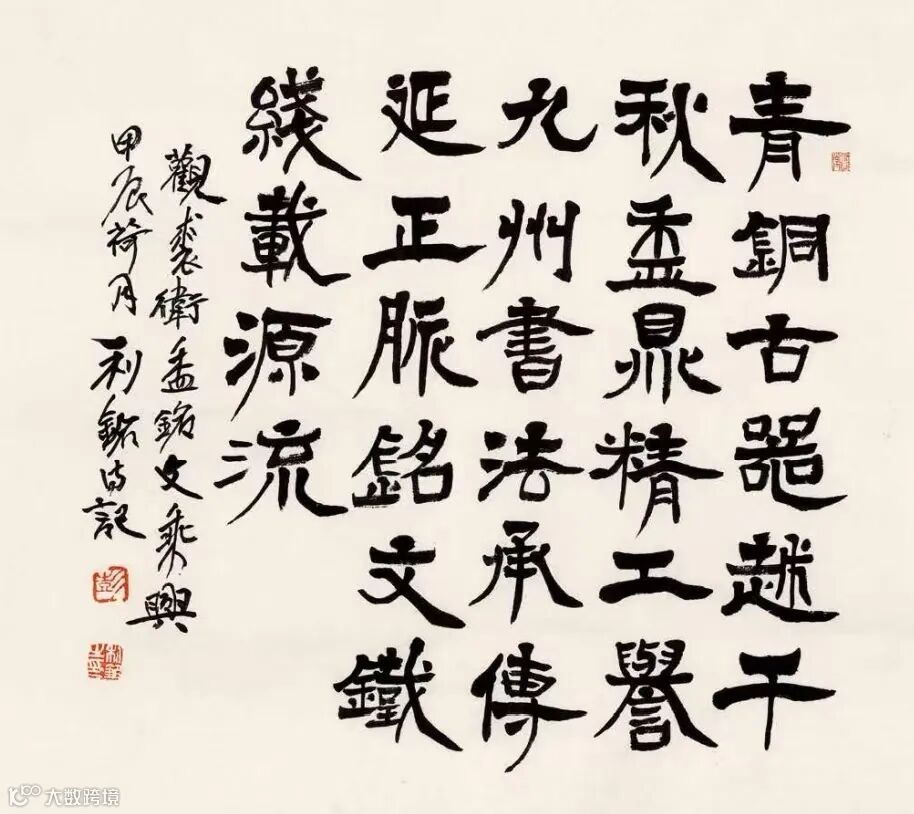 青銅古器越千
秋盉鼎精工譽
九州書法承傳
延正脈銘文鐵
綫載源流
觀裘衛盉銘文乘興
甲辰荷月利銘詩記
大数跨境